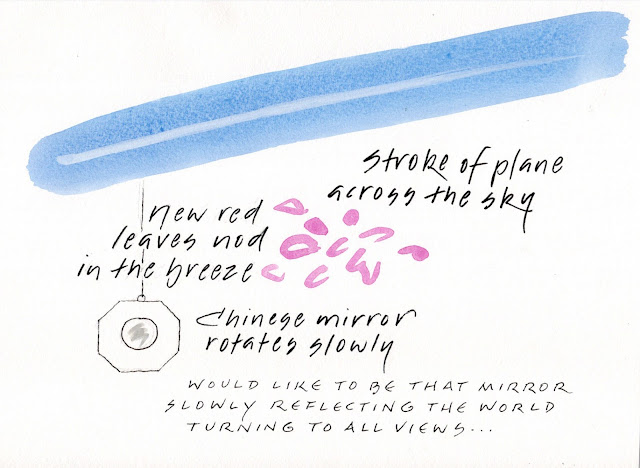 stroke of plane
across the sky
new red
leaves nod
in the breeze
Chinese mirror
rotates slowly
WOULD LIKE TO BE THAT MIRROR
SLOWLY REFLECTING THE WORLD
TURNING TO ALL VIEWS...